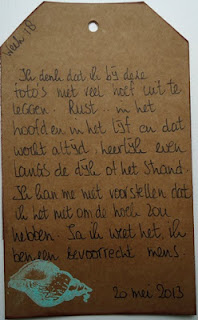 Week 18
Ik denk dat ik bij deze
foto's niet veel hoef uit te
leggen. Rust... in het
hoofd en in het lijf en dat
werkt altijd, heerlijk even
langs de dijk of het strand.
Ik kan me niet voorstellen dat
ik het niet om de hoek zou
hebben. Ja ik weet het, ik
ben een bevoorrecht mens
20 mei 2013